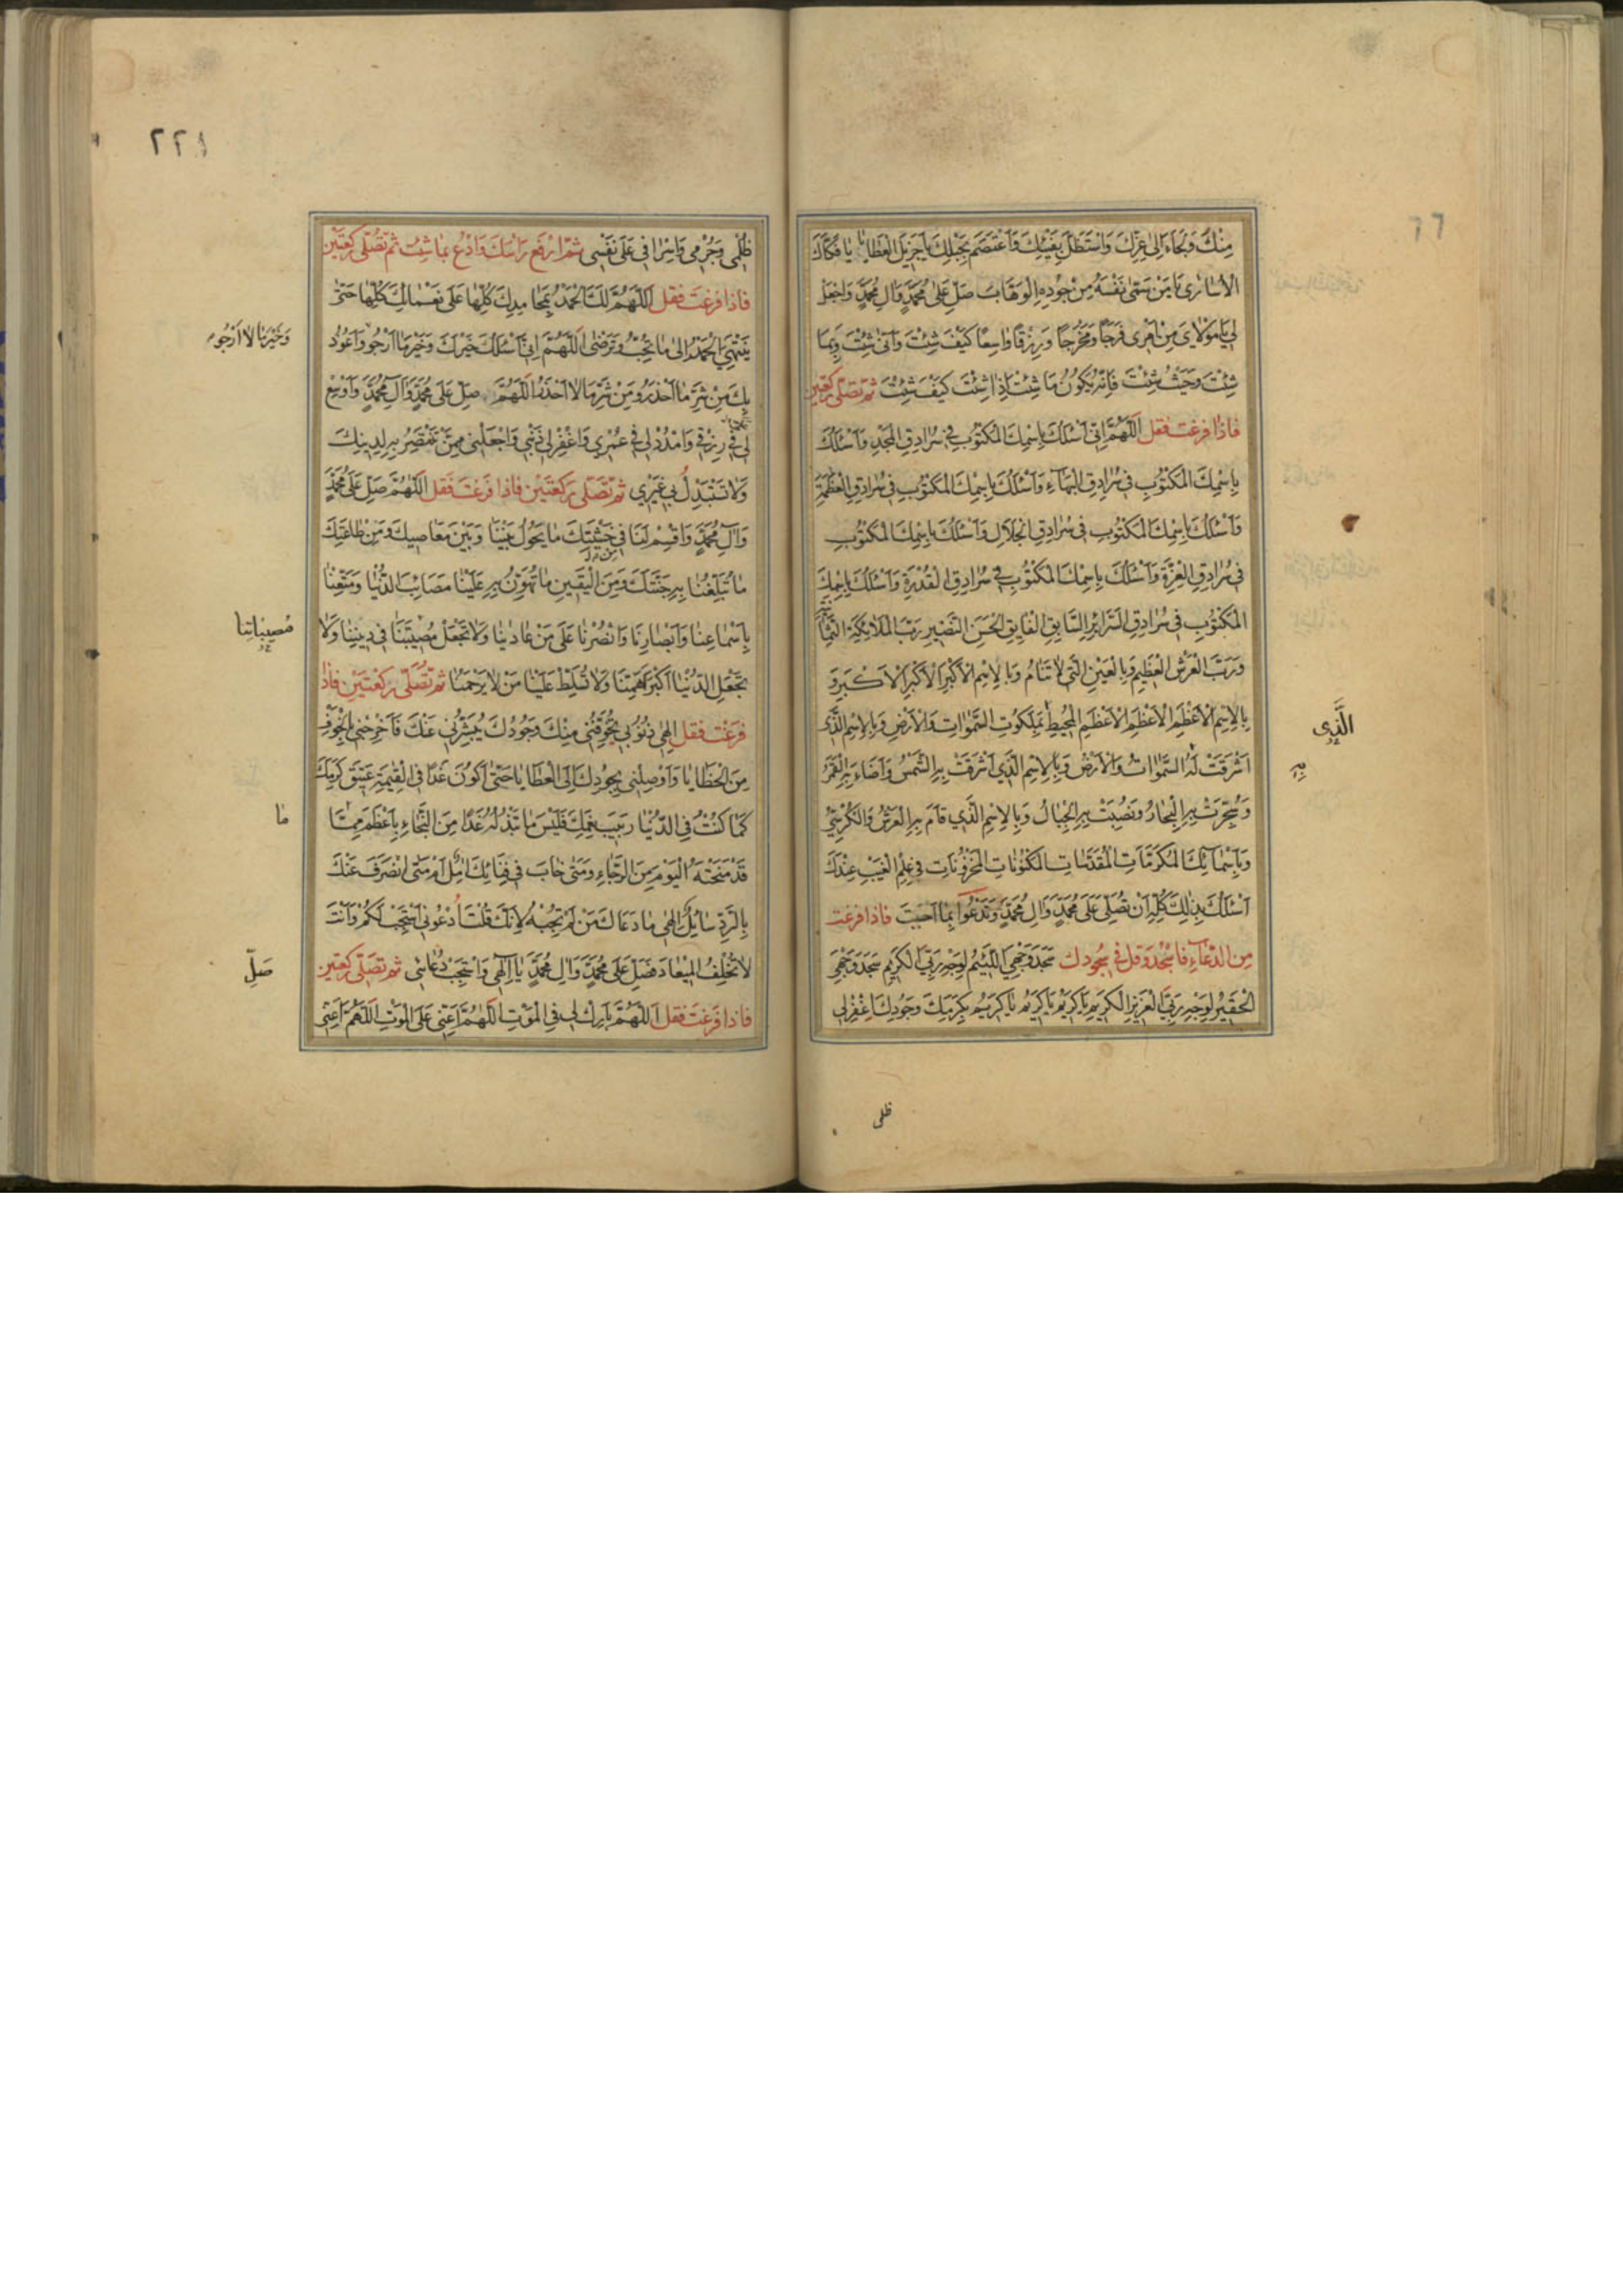 مِنْكَ وَلَجَاءَ اِلٰى عِزِّكَ وَاسْتَظَلَّ بِفَيْئِكَ وَاعْتَصَمَ بِحَبْلِكَ يٰا جَزِيلَ الْعَطٰايٰا يٰا فَكّٰاكَ
الْاُسٰارٰى يٰا مَنْ سَمّٰى نَفْسَهُ مِنْ جُودِهِ الْوَهّٰابَ صَلِّ عَلٰى مُحَمَّدٍ وَاٰلِ مُحَمَّدٍ وَاجْعَلْ
لِي يٰا مَوْلٰايَ مِنْ اَمْرِى فَرَجًا وَمَخْرَجًا وَرِزْقًا وٰاسِعًا كَيْفَ شِئْتَ وَاَنّٰى شِئْتَ وَبِمٰا
شِئْتَ وَحَيْثُ شِئْتَ فَاِنَّهُ يَكُونُ مٰا شِئْتَ اِذٰا شِئْتَ كَيْفَ شِئْتَ ثمّ تصَلّى ركعَتين
فاذا فرغت فقل اَللّٰهُمَّ اِنِّى اَسْئَلُكَ بِاسْمِكَ الْمَكْتُوبِ فِي سُرٰادِقِ الْمَجْدِ وَاَسْئَلُكَ
بِاسْمِكَ الْمَكْتُوبِ فِي سُرٰادِقِ الْبَهٰآءِ وَاَسْئَلُكَ بِاسْمِكَ الْمَكْتُوبِ فِي سُرٰادِقِ الْعَظَمَةِ
وَاَسْئَلُكَ بِاسْمِكَ الْمَكْتُوبِ فِي سُرٰادِقِ الْجَلٰالِ وَاَسْئَلُكَ بِاسْمِكَ الْمَكْتُوبِ
فِي سُرٰادِقِ الْعِزَّةِ وَاَسْئَلُكَ بِاسْمِكَ الْمَكْتُوبِ فِي سُرٰادِقِ الْقُدْرَةِ وَاَسْئَلُكَ بِاسْمِكَ
الْمَكْتُوبِ فِي سُرٰادِقِ السَّرٰائِرِ السّٰابِقِ الْفٰايِقِ الْحَسَنِ النَّضِيرِ رَبِّ الْمَلٰائِكَةِ الثَّمٰانِيَةِ
وَرَبَّ الْعَرْشِ الْعَظِيمِ وَبِالْعَيْنِ الَّتِي لٰا تَنٰامُ وَبِالْاِسْمِ الْاَكْبَرِ الْاَكْبَرِ الْاَكْبَرِ وَ
بِالْاِسْمِ الْاَعْظَمِ الْاَعْظَمِ الْاَعْظَمِ الْمُحِيطِ بِمَلَكُوتِ السَّمٰوٰاتِ وَالْاَرْضِ وَبِالْاِسْمِ الَّذِى
الَّذِى
اَشْرَقَتْ لَهُ السَّمٰوٰاتُ وَالْاَرْضُ وَبِالْاِسْمِ الَّذِي اَشْرَقَتْ بِهِ الشَّمْسُ وَاَضٰاءَ بِهِ الْقَمَرُ
بِهِ
وَسُجِّرَتْ بِهِ الْبِحٰارُ وَنُصِبَتْ بِهِ الْجِبٰالُ وَبِالْاِسْمِ الَّذِي قٰامَ بِهِ الْعَرْشُ وَالْكُرْسِيُّ
وَبِاَسْمٰآئِكَ الْمُكَرَّمٰاتِ الْمُقَدَّسٰاتِ الْمَكْنُونٰاتِ الْمَخْزُونٰاتِ فِي عِلْمِ الْغَيْبِ عِنْدَكَ
اَسْئَلُكَ بِذٰلِكَ كُلِّهِ اَنْ تُصَلِّىَ عَلٰى مُحَمَّدٍ وَاٰلِ مُحَمَّدٍ وَتَدْعُوا بِمٰا اَحْبَبْتَ فاذا فرغت
مِن الدّعآءِ فاسْجُد وَقل في سُجُودك سَجَدَ وَجْهِيَ اللَّئِيمُ لِوَجْهِ رَبِّيَ الْكَرِيمِ سَجَدَ وَجْهِيَ
الْحَقِيرُ لِوَجْهِ رَبِّيَ الْعَزِيزِ الْكَرِيمِ يٰا كَرِيمُ يٰا كَرِيمُ يٰا كَرِيمُ بِكَرَمِكَ وَجُودِكَ اغْفِرْلِي
ظلمى
٢٢١
ظُلْمِى وَجُرْمِى وَاِسْرٰافِى عَلٰى نَفْسِى ثمّ ارْفع رَاسَكَ وَادْع بمٰا شِئت ثمّ تصَلّى ركعَتين
فاذا فرغتَ فقل اَللّٰهُمَّ لَكَ الْحَمْدُ بِمَحٰامِدِكَ كُلِّهٰا عَلٰى نَعْمٰائِكَ كُلِّهٰا حَتّٰى
يَنْتَهِيَ الْحَمْدُ اِلٰى مٰا تُحِبُّ وَتَرْضٰى اَللّٰهُمَّ اِنِّى اَسْئَلُكَ خَيْرَكَ وَخَيْرَ مٰا اَرْجُو وَاَعُوذُ
وَخَيْرَ مٰا لٰا اَرْجُو
بِكَ مِنْ شَرِّ مٰا اَحْذَرُ وَمِنْ شَرِّ مٰا لٰا اَحْذَرُ اَللّٰهُمَّ صَلِّ عَلٰى مُحَمَّدٍ وَاٰلِ مُحَمَّدٍ وَاَوْسِعْ
لِى فِي رِزْقِى وَامْدُدْ لِى فِي عُمْرِي وَاغْفِرْ لِى ذَنْبِى وَاجْعَلْنِى مِمَّنْ تَنْتَصِرُ بِهِ لِدِينِكَ
وَلٰا تَسْتَبْدِلْ بِى غَيْرِي ثمّ تصَلّى ركعَتين فاذا فرغتَ فقل اَللّٰهُمَّ صَلِّ عَلٰى مُحَمَّدٍ
وَاٰلِ مُحَمَّدٍ وَاقْسِمْ لَنٰا فِي خَشْيَتِكَ مٰا يَحُولُ بَيْنَنٰا وَبَيْنَ مَعٰاصِيكَ وَمِنْ طٰاعَتِكَ
مٰا تُبَلِّغُنٰا بِهِ جَنَّتَكَ وَمِنَ الْيَقِينِ مٰا تُهَوِّنُ بِهِ عَلَيْنٰا مَصٰائِبَ الدُّنْيٰا وَمَتِّعْنٰا
بِاَسْمٰاعِنٰا وَاَبْصٰارِنٰا وَانْصُرْنٰا عَلٰى مَنْ عٰادٰينٰا وَلٰا تَجْعَلْ مُصِيبَتَنٰا فِى دِينِنٰا وَلٰا
مُصيباتِنا
تَجْعَلِ الدُّنْيٰا اَكْبَرَ هَمِّنٰا وَلٰا تُسَلِّطْ عَلَيْنٰا مَنْ لٰا يَرْحَمُنٰا ثمّ تُصَلّى ركعَتين فاذا
فرَغت فقل اِلٰهِى ذُنُوبِى تُخَوِّفُنِى مِنْكَ وَجُودُكَ يُبَشِّرُنِى عَنْكَ فَاَخْرِجْنِى بِالْخَوْفِ
مِنَ الْخَطٰايٰا وَاَوْصِلْنِى بِجُودِكَ اِلَى الْعَطٰايٰا حَتّٰى اَكُونَ غَدًا فِى الْقِيٰمَةِ عَتِيقَ كَرَمِكَ
كَمٰا كُنْتُ فِى الدُّنْيٰا رَبِيبَ نِعَمِكَ فَلَيْسَ مٰا تَبْذُلُهُ غَدًا مِنَ النَّجٰاءِ بِاَعْظَمَ مِمّٰا
مٰا
قَدْ مَنَحْتَهُ الْيَوْمَ مِنَ الرَّجٰاءِ وَمَتٰى خٰابَ فِي فِنٰائِكَ اٰمِلٌ اَمْ مَتٰى انْصَرَفَ عَنْكَ
بِالرَّدِّ سٰائِلٌ اِلٰهِى مٰا دَعٰاكَ مَنْ لَمْ تُجِبْهُ لِاَنَّكَ قُلْتَ اُدْعُونِى اَسْتَجِبْ لَكُمْ وَاَنْتَ
لٰا تُخْلِفُ الْمِيعٰادَ فَصَلِّ عَلٰى مُحَمَّدٍ وَاٰلِ مُحَمَّدٍ يٰا اِلٰهِى وَاسْتَجِبْ دُعٰائِى ثم تصَلّى ركعَتين
صَلِّ
فاذا فَرَغتَ فقل اَللّٰهُمَّ بٰارِكْ لِى فِى الْمَوْتِ اَللّٰهُمَّ اَعِنِّى عَلَى الْمَوْتِ اَللّٰهُمَّ اَعِنِّى